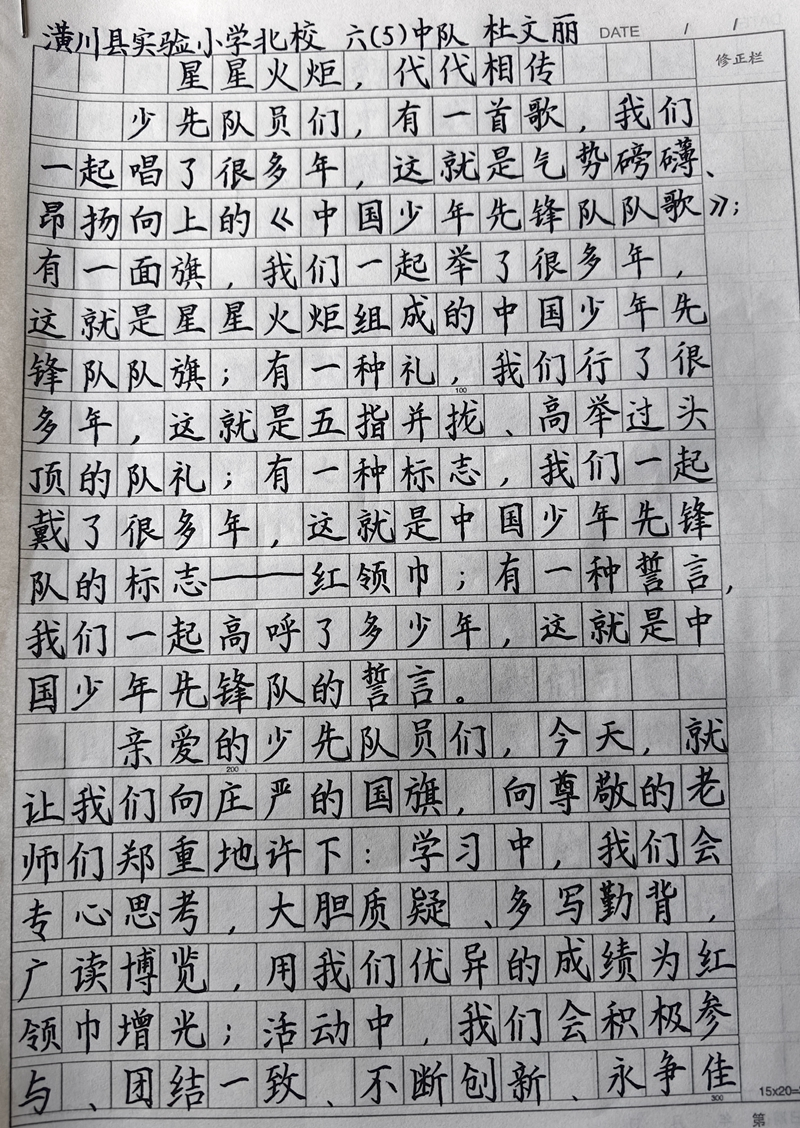 潢川县实验小学北校 六(5)中队 杜文丽 DATE / /
修正栏
星星火炬，代代相传
少先队员们，有一首歌，我们
一起唱了很多年，这就是气势磅礴、
昂扬向上的《中国少年先锋队队歌》；
有一面旗，我们一起举了很多年，
这就是星星火炬组成的中国少年先
锋队队旗；有一种礼，我们行了很
100
多年，这就是五指并拢、高举过头
顶的队礼；有一种标志，我们一起
戴了很多年，这就是中国少年先锋
队的标志——红领巾；有一种誓言，
我们一起高呼了多少年，这就是中
国少年先锋队的誓言。
亲爱的少先队员们，今天，就
200
让我们向庄严的国旗，向尊敬的老
师们郑重地许下：学习中，我们会
专心思考，大胆质疑、多写勤背，
广读博览，用我们优异的成绩为红
领巾增光；活动中，我们会积极参
与、团结一致、不断创新、永争佳
300
15x20=
第